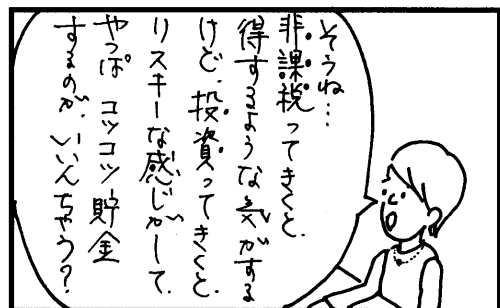 そうね…
非課税ってきくと、
得するような気がする
けど、投資ってきくと、
リスキーな感じがして、
やっぱ コツコツ 貯金
するのが、いいんちゃう？